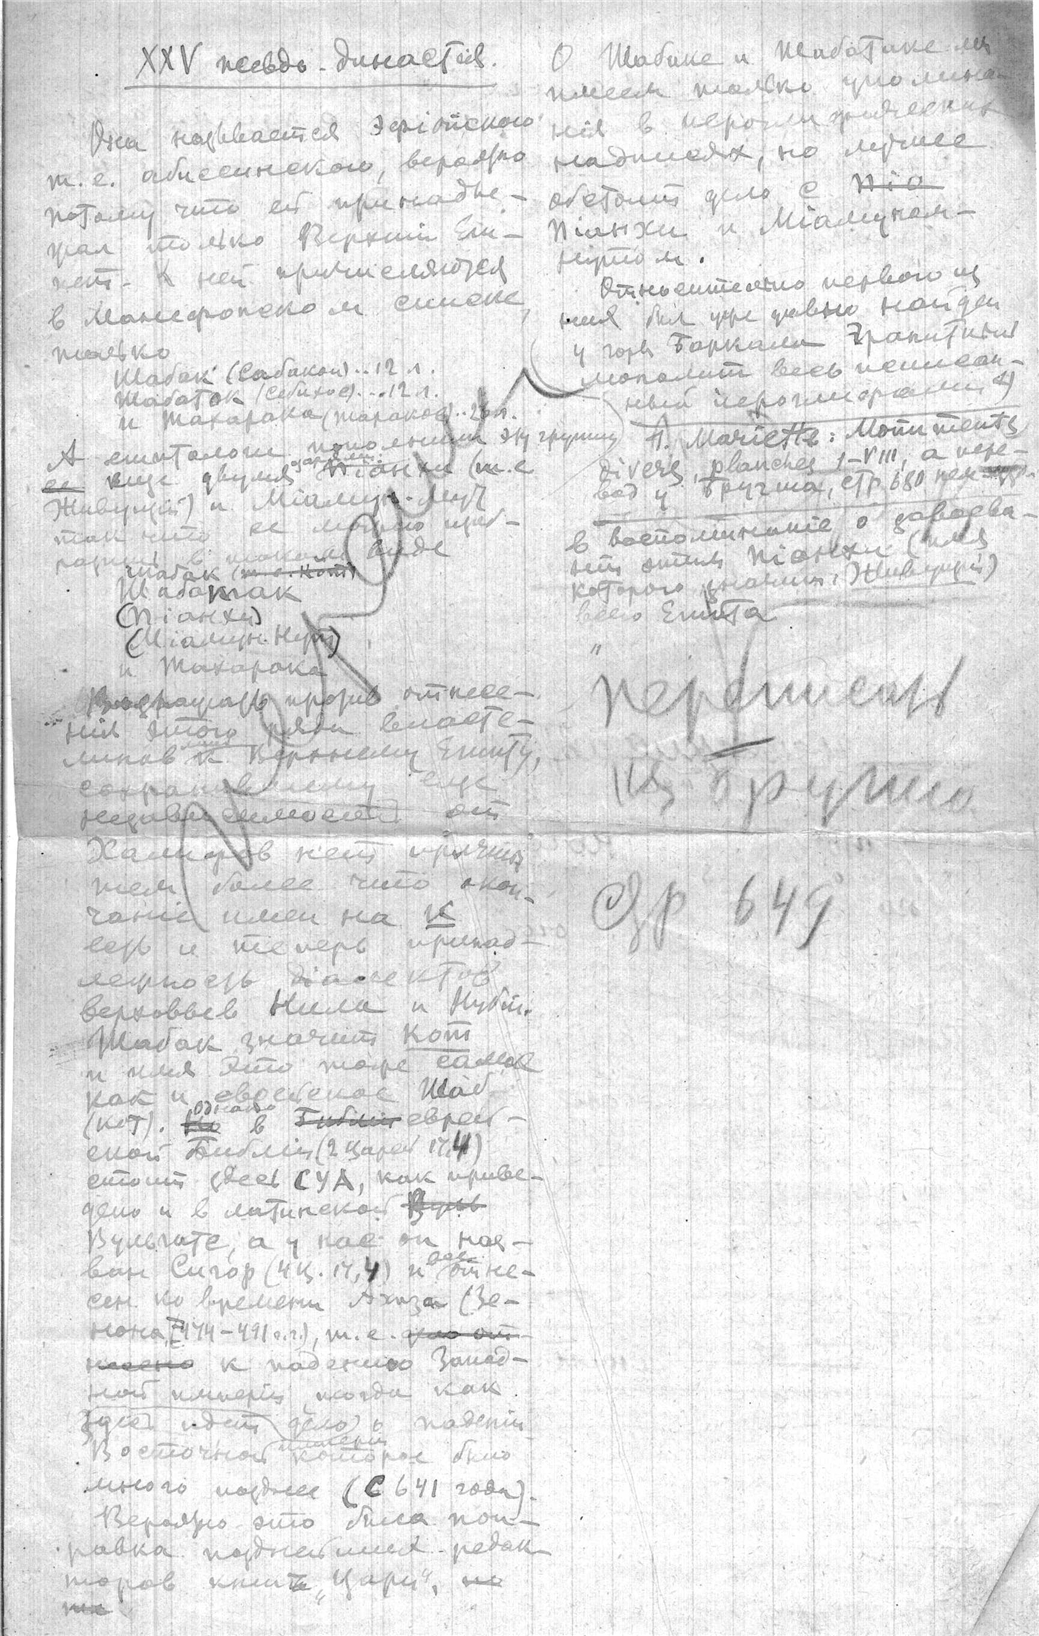 XXV псевдо-династия.
Она называется Эфіопскою
т.е. абиссинскою, вероятно
потому что ей принадле-
жал только Верхній Еги-
пет. К ней причисляются
в Манефонском списке,
только
Шабак (Сабакон)..12 л.
Шабаток (Себихос)...12 л.
и Тахарака (Тараков)..20 л.
А египтологи пополнили эту группу
ее еще двумя Піанхи (т.е.
Живущій) и Міамун-Нут
так что ее можно изоб-
разить в таком виде
Шабак (т.е. Кот)
Шабатак
(Піанхи)
(Міамун-Нут)
и Тахарака
Возражать против отнесе-
нія этого ряда власте-
линов к Верхнему Египту,
сохранившему еще
независимость от
Халифов нет причин
тем более что окон-
чаніе имен на к
есть и теперь принад-
лежность діалектов
верховьев Нила и Нубіи.
Шабак значит Кот
и имя это тоже самое
как и еврейское Шаб
(кот). Но однако в Библіи еврей-
ской Библіи (2 Царей 17,4)
стоит здесь СУА, как приве-
дено и в латинской Вуль
Вульгате, а у нас он наз-
ван Сигор (4 Ц. 17,4) и отне-
сен ко времени Ахаза (Зе-
нона, 474–491 г.г.), т.е. что от-
несено к паденію Запад-
ной имперіи тогда как
здесь идет дело о паденіи
Восточной имперіи которое было
много позднее (с 641 года).
Вероятно это была поп-
равка позднейших редак-
торов книги „Цари", но
та
О Шабаке и Шабатаке мы
имеем только упомина-
нія в іероглифических
надписях, но лучше
обстоит дело с Піа
Піанхи и Міамуном-
Нутом.
Относительно первого из
них был уже давно найден
у горы Баркала гранитный
монолит весь исписан-
ный іероглифами 1)
A. Mariette: Monuments
divers, planches I–VIII, а пере-
вод у Бругша, стр 680
в воспоминаніе о завоева-
ніи этим Піанхи (имя
которого значит: Живущій)
всего Египта
"
переписать
из Бругша
Стр 649